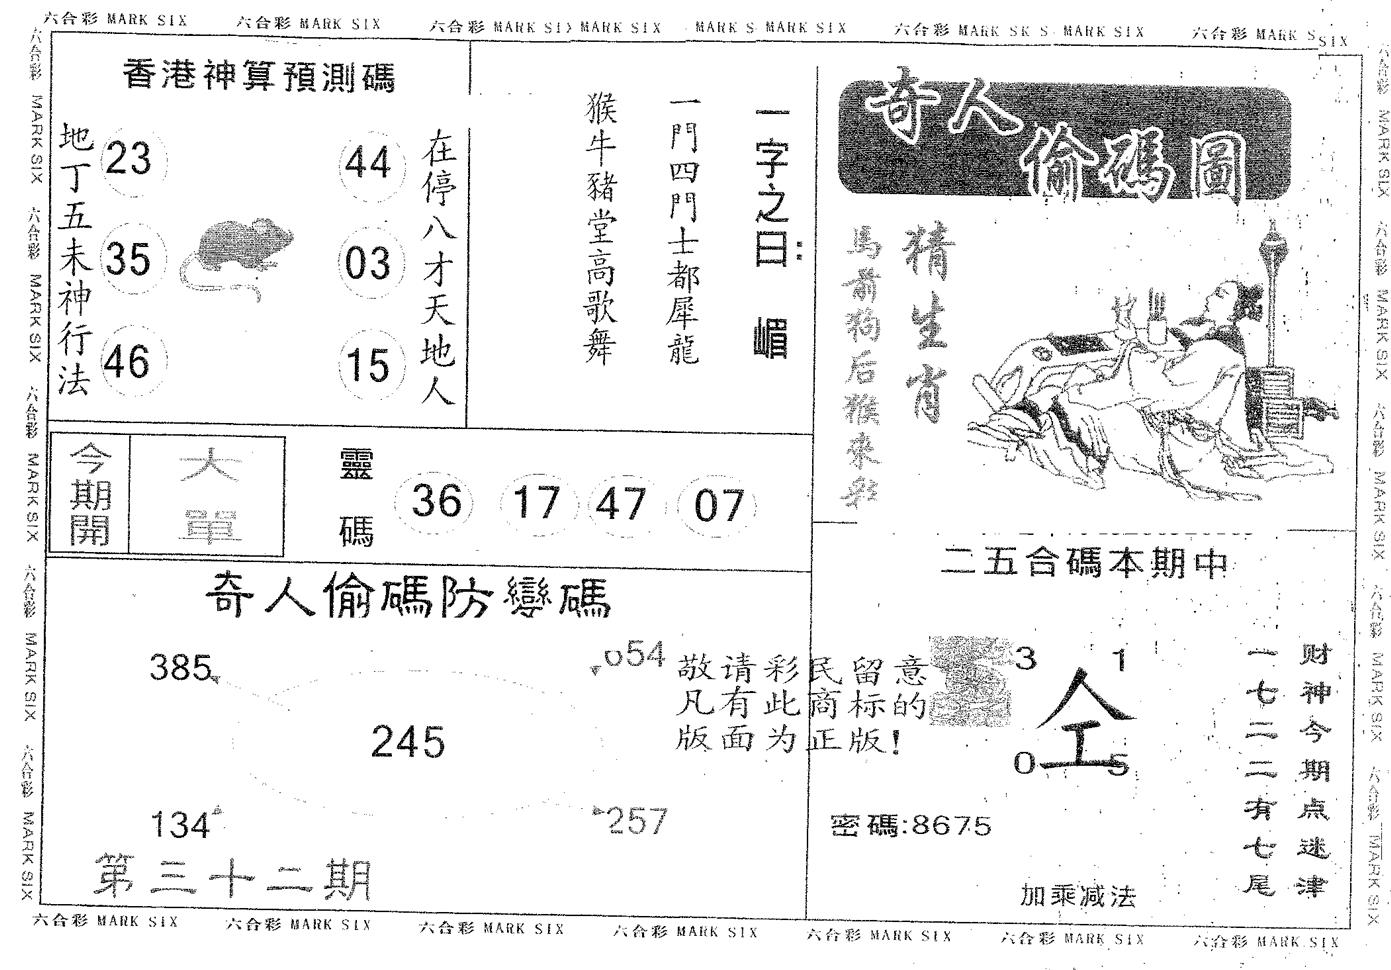 六合彩 MARK SIX
六合彩 MARK SIX
六合彩 MARK SIX MARK SIX
MARK S MARK SIX
六合彩 MARK SK S MARK SIX
六合彩 MARK S SIX
六合彩 MARK SIX
六合彩 MARK SIX
六合彩 MARK SIX
六合彩 MARK SIX
六合彩 MARK SIX
香港神算預測碼
地丁五未神行法
23
35
46
44
03
15
在停八才天地人
猴牛豬堂高歌舞
一門四門士都犀龍
一字之曰:
嵋
奇人偷碼圖
猜生肖
馬前狗后猴來彩
今期開
大單
靈碼
36 17 47 07
奇人偷碼防變碼
385
054
245
134
257
第三十二期
敬请彩民留意
凡有此商标的
版面为正版!
二五合碼本期中
3 1
仝
0 5
密碼:8675
加乘减法
财神今期点迷津
一七二二有七尾
六合彩 MARK SIX
六合彩 MARK SIX
六合彩 MARK SIX
六合彩 MARK SIX
六合彩 MARK SIX
六合彩 MARK SIX
六合彩 MARK SIX
六合彩 MARK SIX
六合彩 MARK SIX
六合彩 MARK SIX
六合彩 MARK SIX
六合彩 MARK SIX